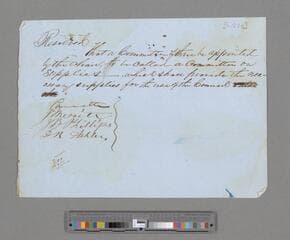 Resolved
That a Committee of three be appointed
by the Chair, to be called a Committee on
Supplies - which shall provide the nec-
essary supplies for the use of the Council
Committee
J B Phillips